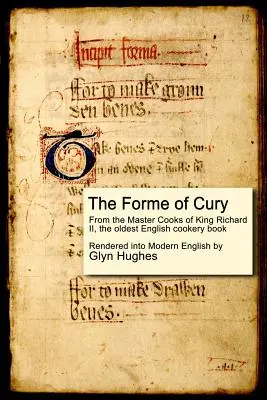 Incipit forma.
ffor to make groun
den benes.
Take benes & drye hem in
an ovene
The Forme of Cury
From the Master Cooks of King Richard
II, the oldest English cookery book
Rendered into Modern English by
Glyn Hughes
ffor to make drawen
benes.